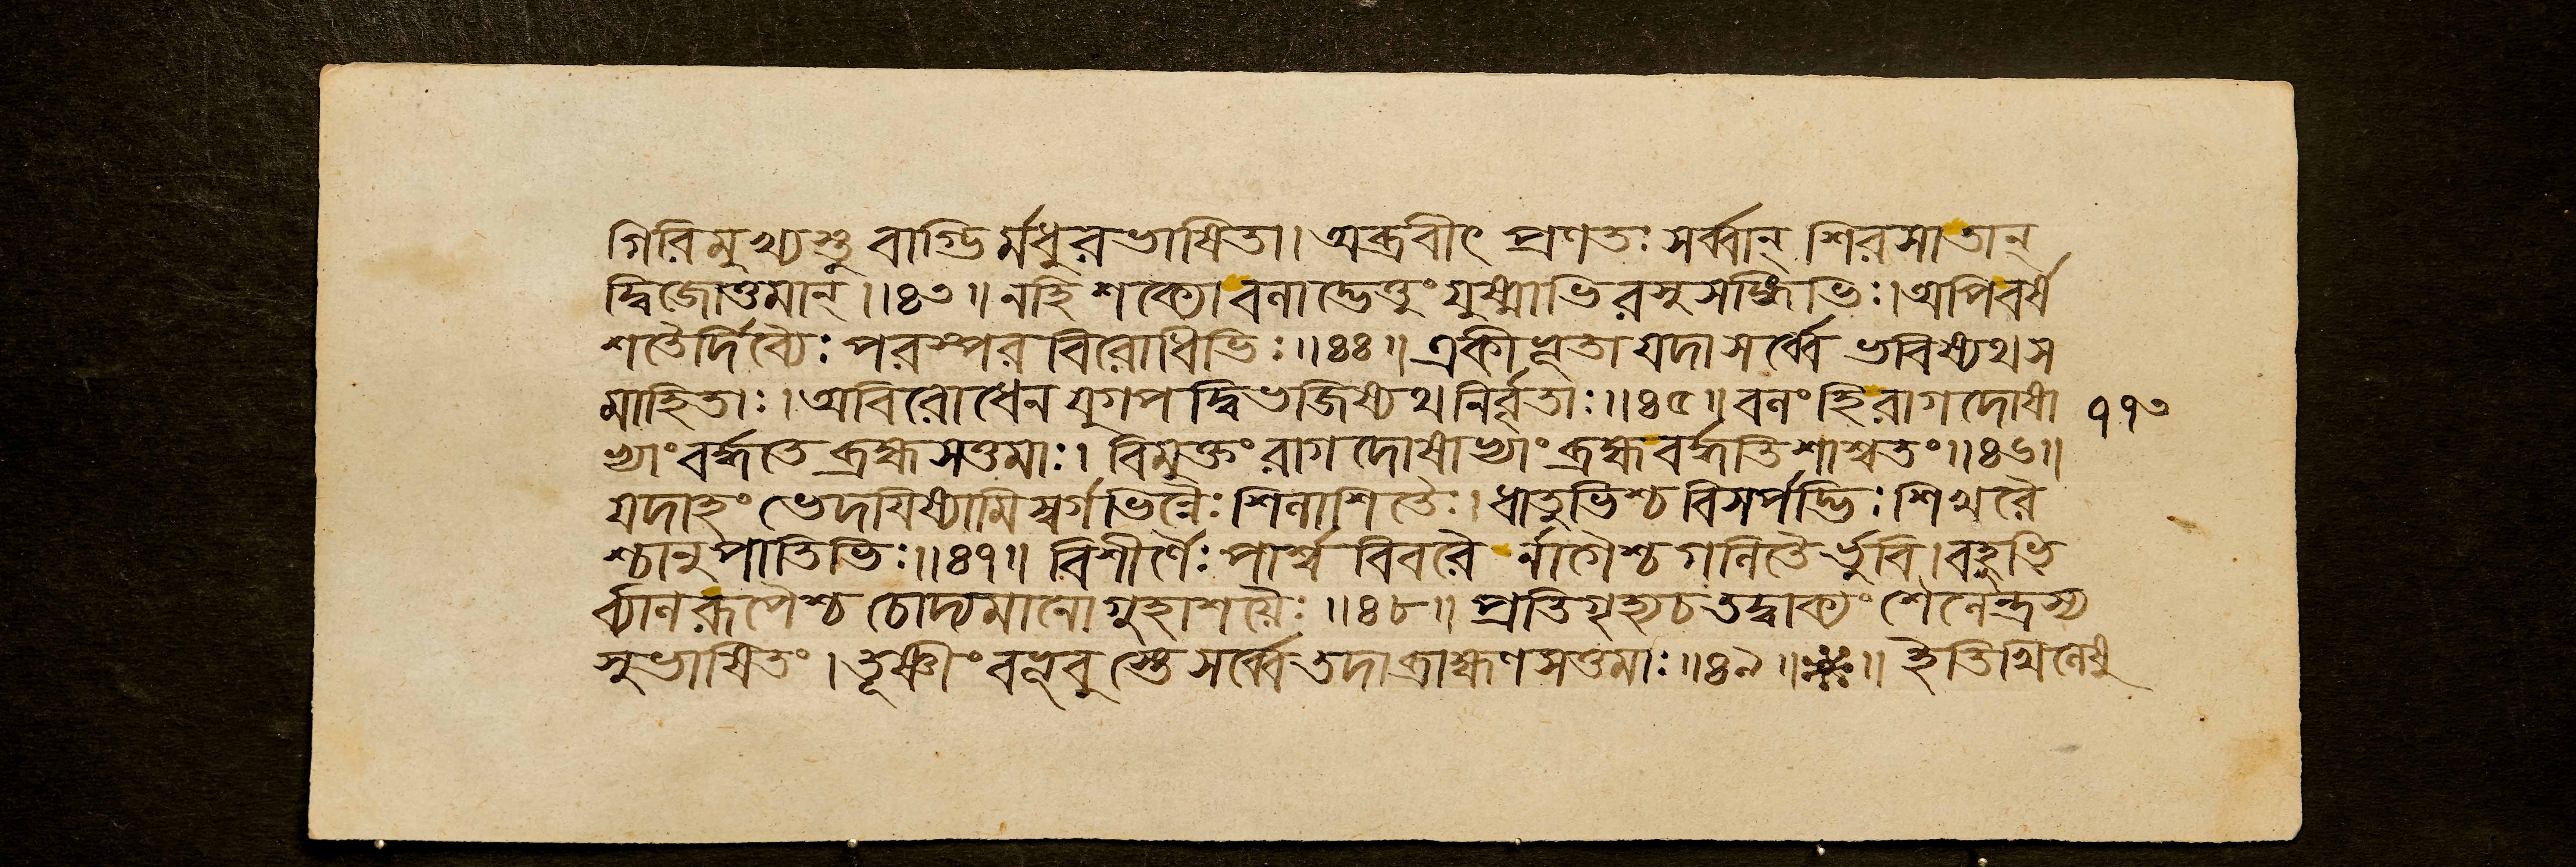 গিরিমুখ্যস্তু বাগ্ভির্মধুরভাষিতা। অব্রবীৎ প্রণতঃ সর্ব্বান্ শিরসাতান্
দ্বিজোত্তমান্॥৪৩॥ নহি শক্যো বলাদ্ভেত্তুং যুষ্মাভিরসুসন্ধিভিঃ। অপিবর্ষ
শতৈর্দিব্যৈঃ পরস্পর বিরোধিভিঃ॥৪৪॥ একীভূতা যদা সর্ব্বে ভবিষ্যথ স
মাহিতাঃ। অবিরোধেন যুগপদ্বিভজিষ্যথ নির্বৃতাঃ॥৪৫॥ বলং হি রাগদোষা
ভ্যাং বর্দ্ধতে ব্রহ্মসত্তমাঃ। বিমুক্তং রাগদোষাভ্যাং ব্রহ্ম বর্দ্ধতি শাশ্বতং॥৪৬॥
যদাহং ভেদয়িষ্যামি স্বর্গভিন্নৈঃ শিলাশিতৈঃ। ধাতুভিশ্চ বিসর্পদ্ভিঃ শিখরৈ
শ্চানুপাতিভিঃ॥৪৭॥ বিশীর্ণৈঃ পার্শ্ব বিবরৈ র্নাগৈশ্চ গলিতৈর্ভুবি। বহুভি
র্ব্যালরূপৈশ্চ চোদ্যমানো গুহাশয়ৈঃ॥৪৮॥ প্রতিগৃহ্যচ তদ্বাক্যং শৈলেন্দ্রস্য
সুভাষিতং। তূষ্ণীং বভূবুস্তে সর্ব্বে তদা ব্রাহ্মণসত্তমাঃ॥৪৯॥ ॥ ইতি খিলেষু
১১৩